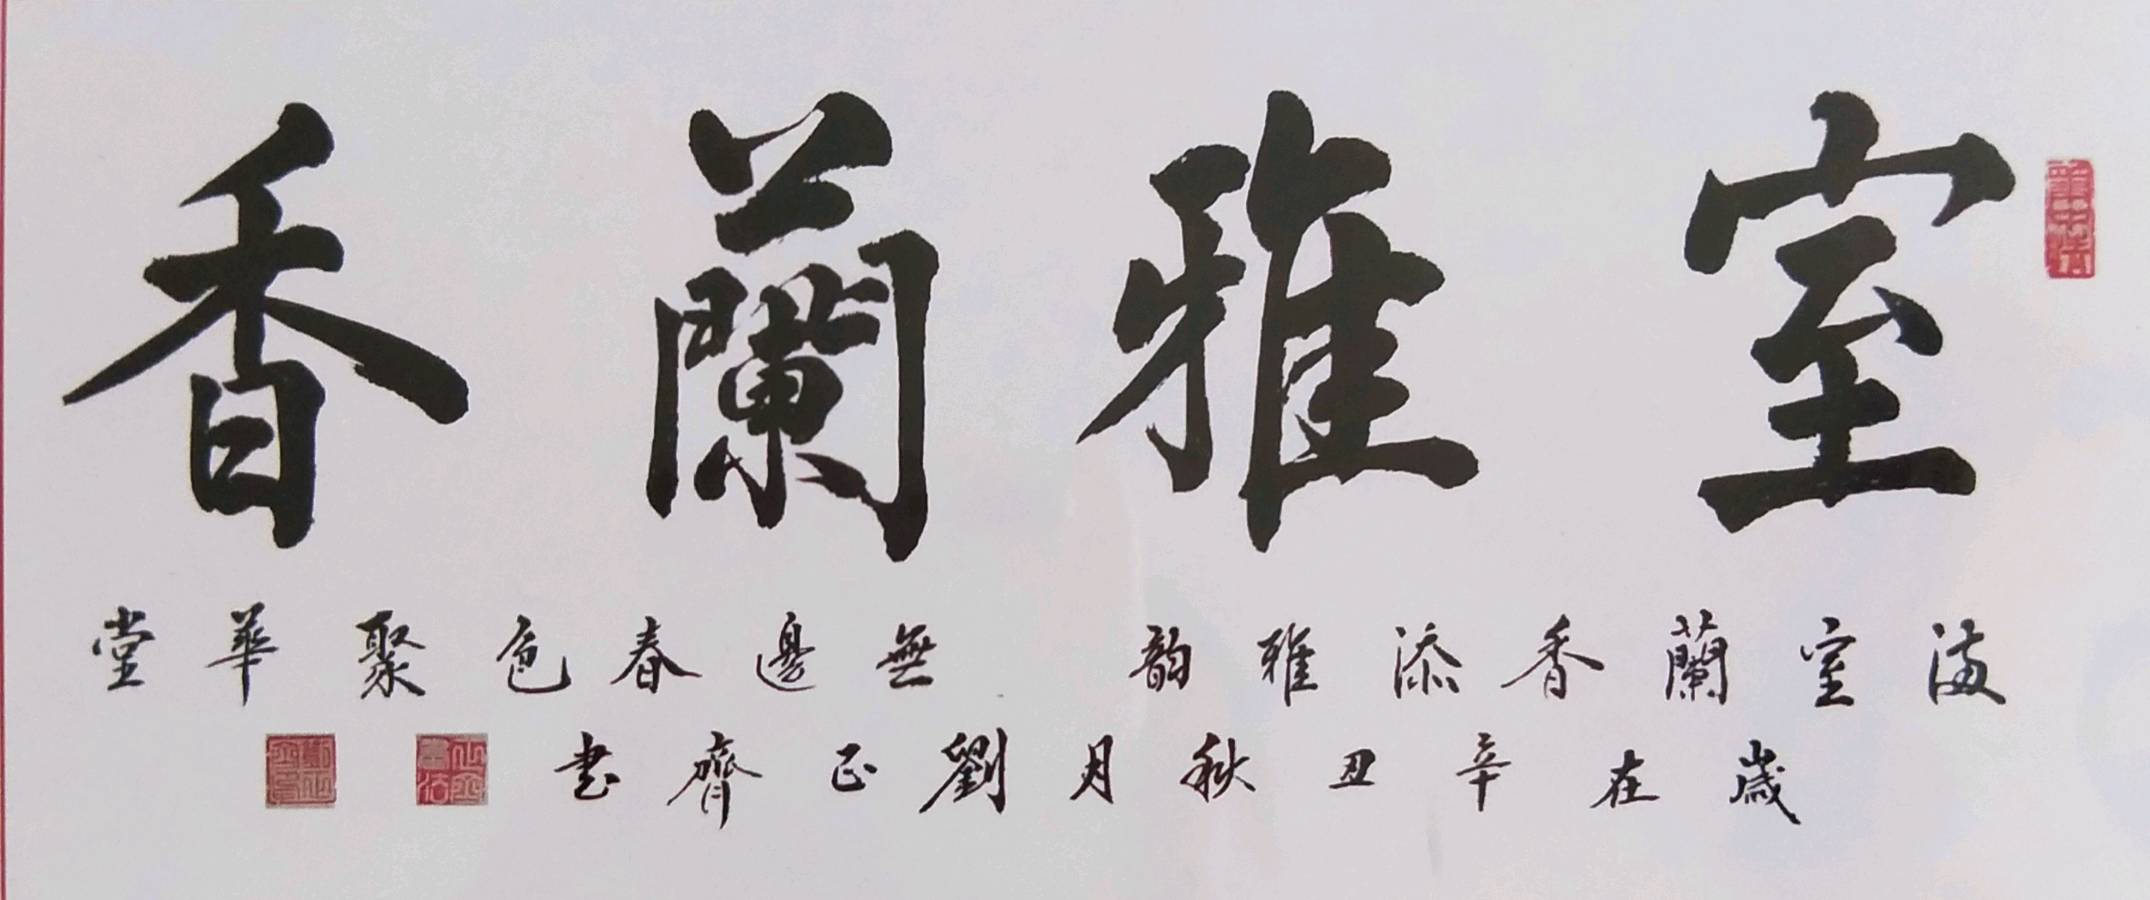 室雅蘭香
滿室蘭香添雅韵 無邊春色聚華堂
歲在辛丑秋月劉正齊書